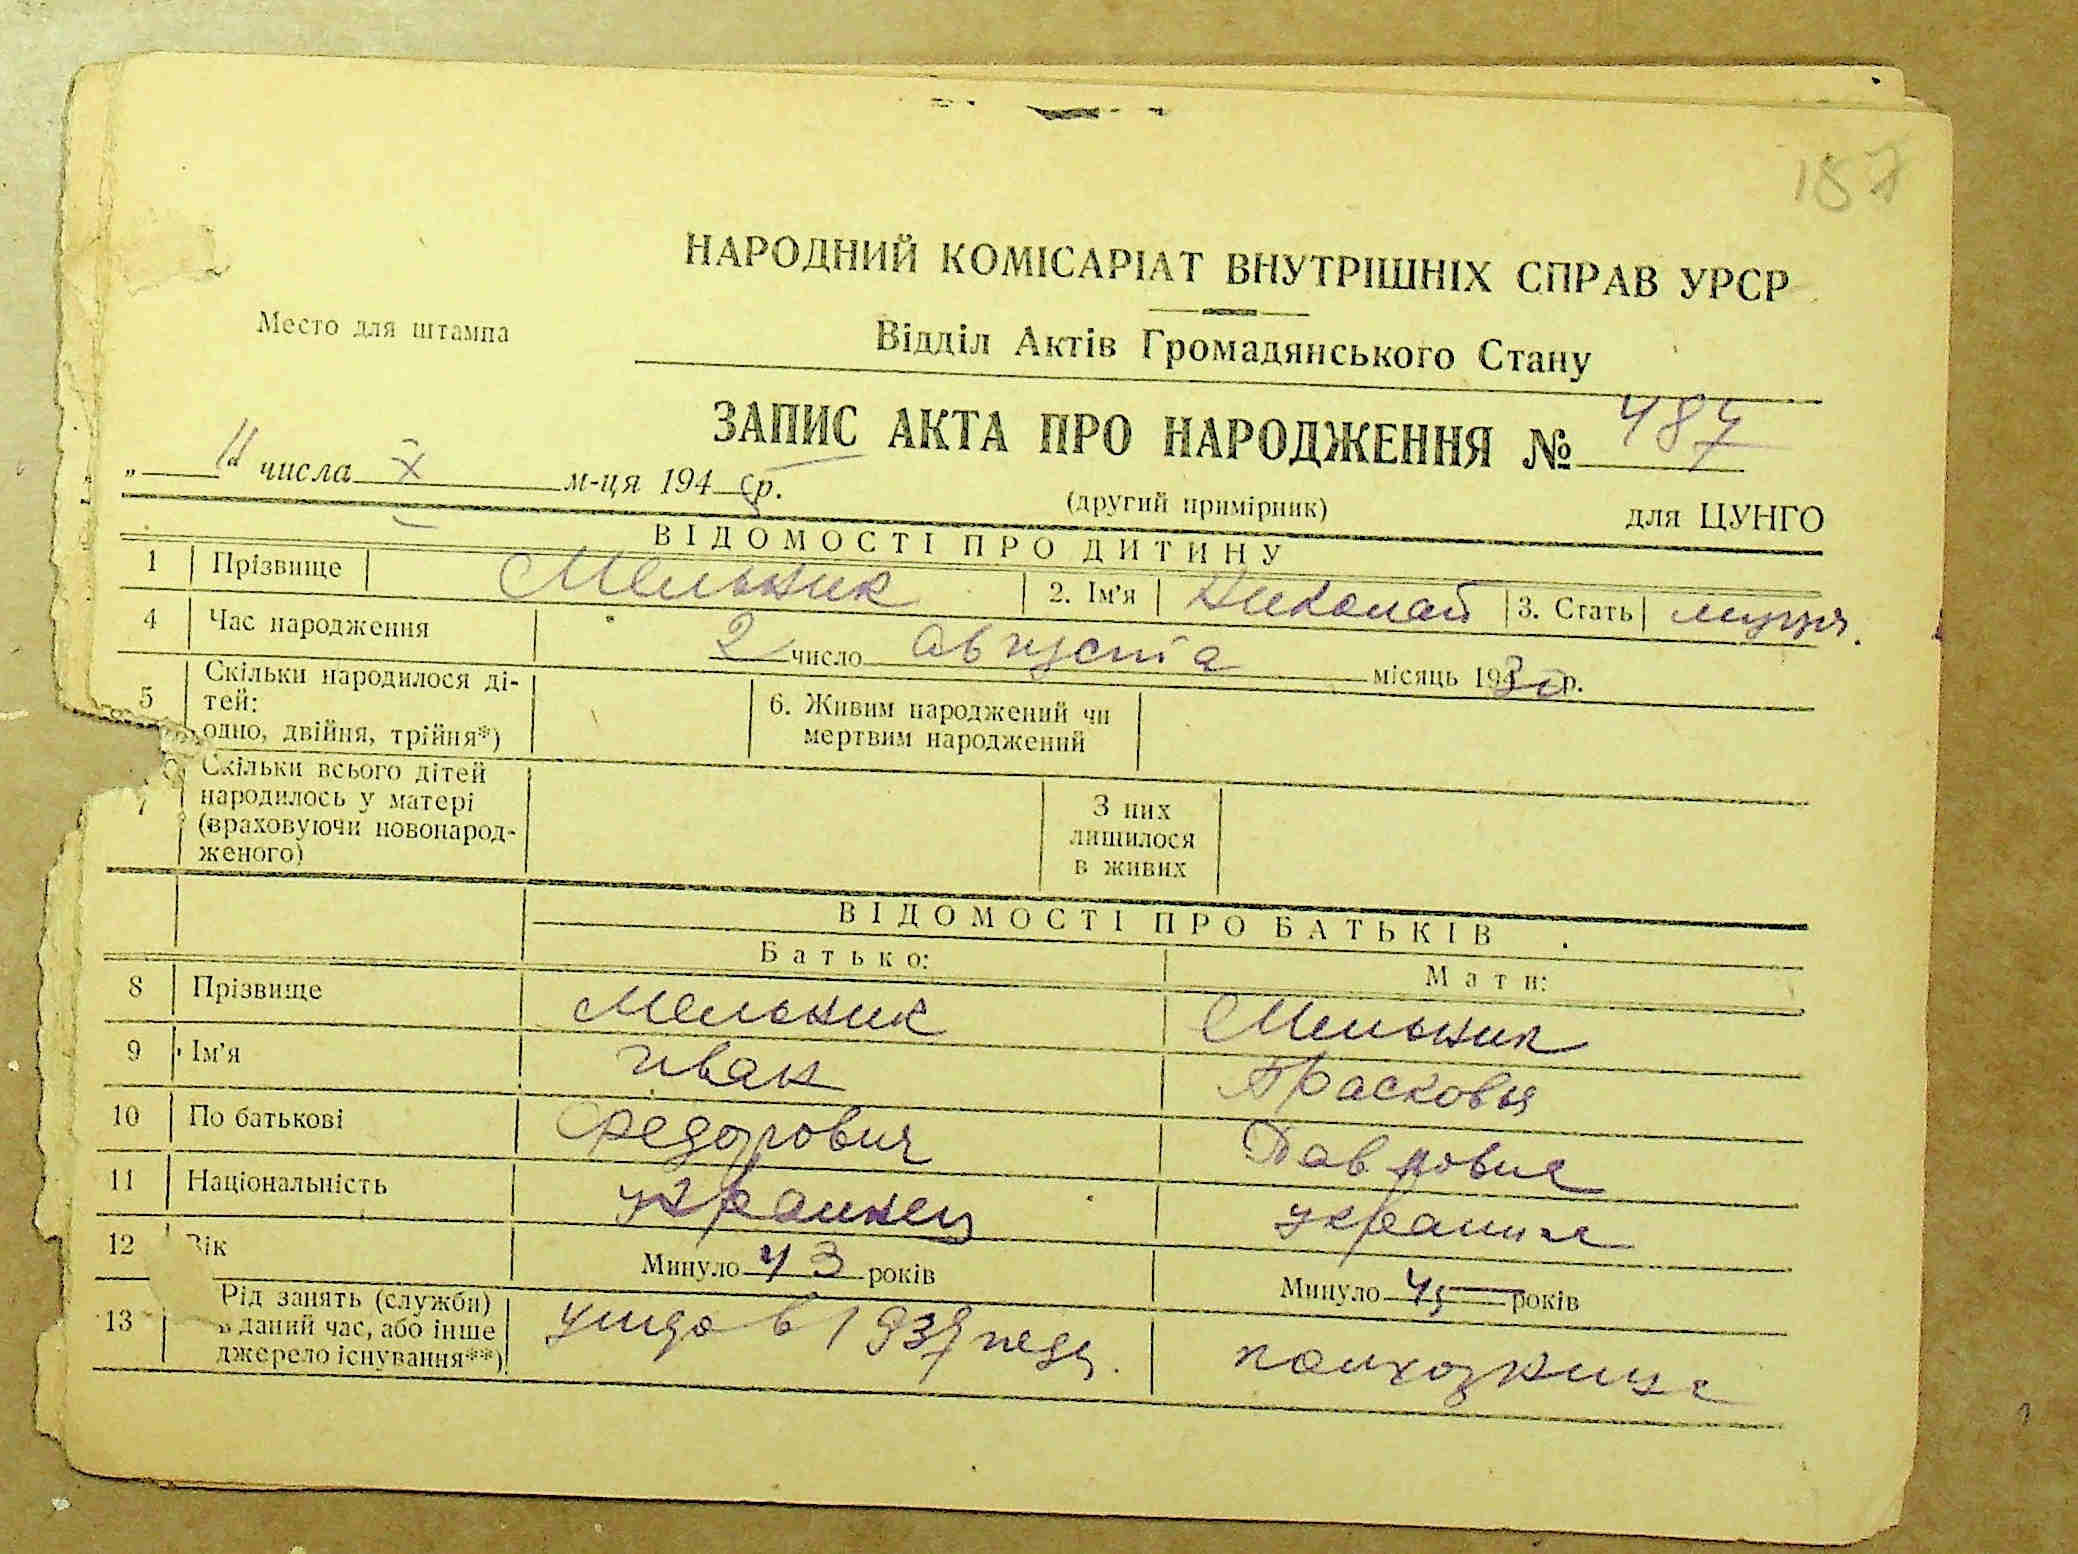 157
НАРОДНИЙ КОМІСАРІАТ ВНУТРІШНІХ СПРАВ УРСР
Место для штампа
Відділ Актів Громадянського Стану
ЗАПИС АКТА ПРО НАРОДЖЕННЯ № 487
„ 11 “ числа X м-ця 1945 р.
(другий примірник) для ЦУНГО
ВІДОМОСТІ ПРО ДИТИНУ
1 Прізвище Мельник 2. Ім'я Николай 3. Стать
4 Час народження 2 число августа місяць 1930 р.
5 Скільки народилося ді-
тей:
одно, двійня, трійня*)
6. Живим народжений чи
мертвим народжений
7 Скільки всього дітей
народилось у матері
(враховуючи новонарод-
женого)
З них
лишилося
в живих
ВІДОМОСТІ ПРО БАТЬКІВ
Батько: Мати:
8 Прізвище Мельник Мельник
9 Ім'я Иван Прасковья
10 По батькові Федорович Павловна
11 Національність украинец украинка
12 Вік Минуло 43 років Минуло 45 років
13 Рід занять (служби)
в даний час, або інше
джерело існування**)
в 193
колхозница